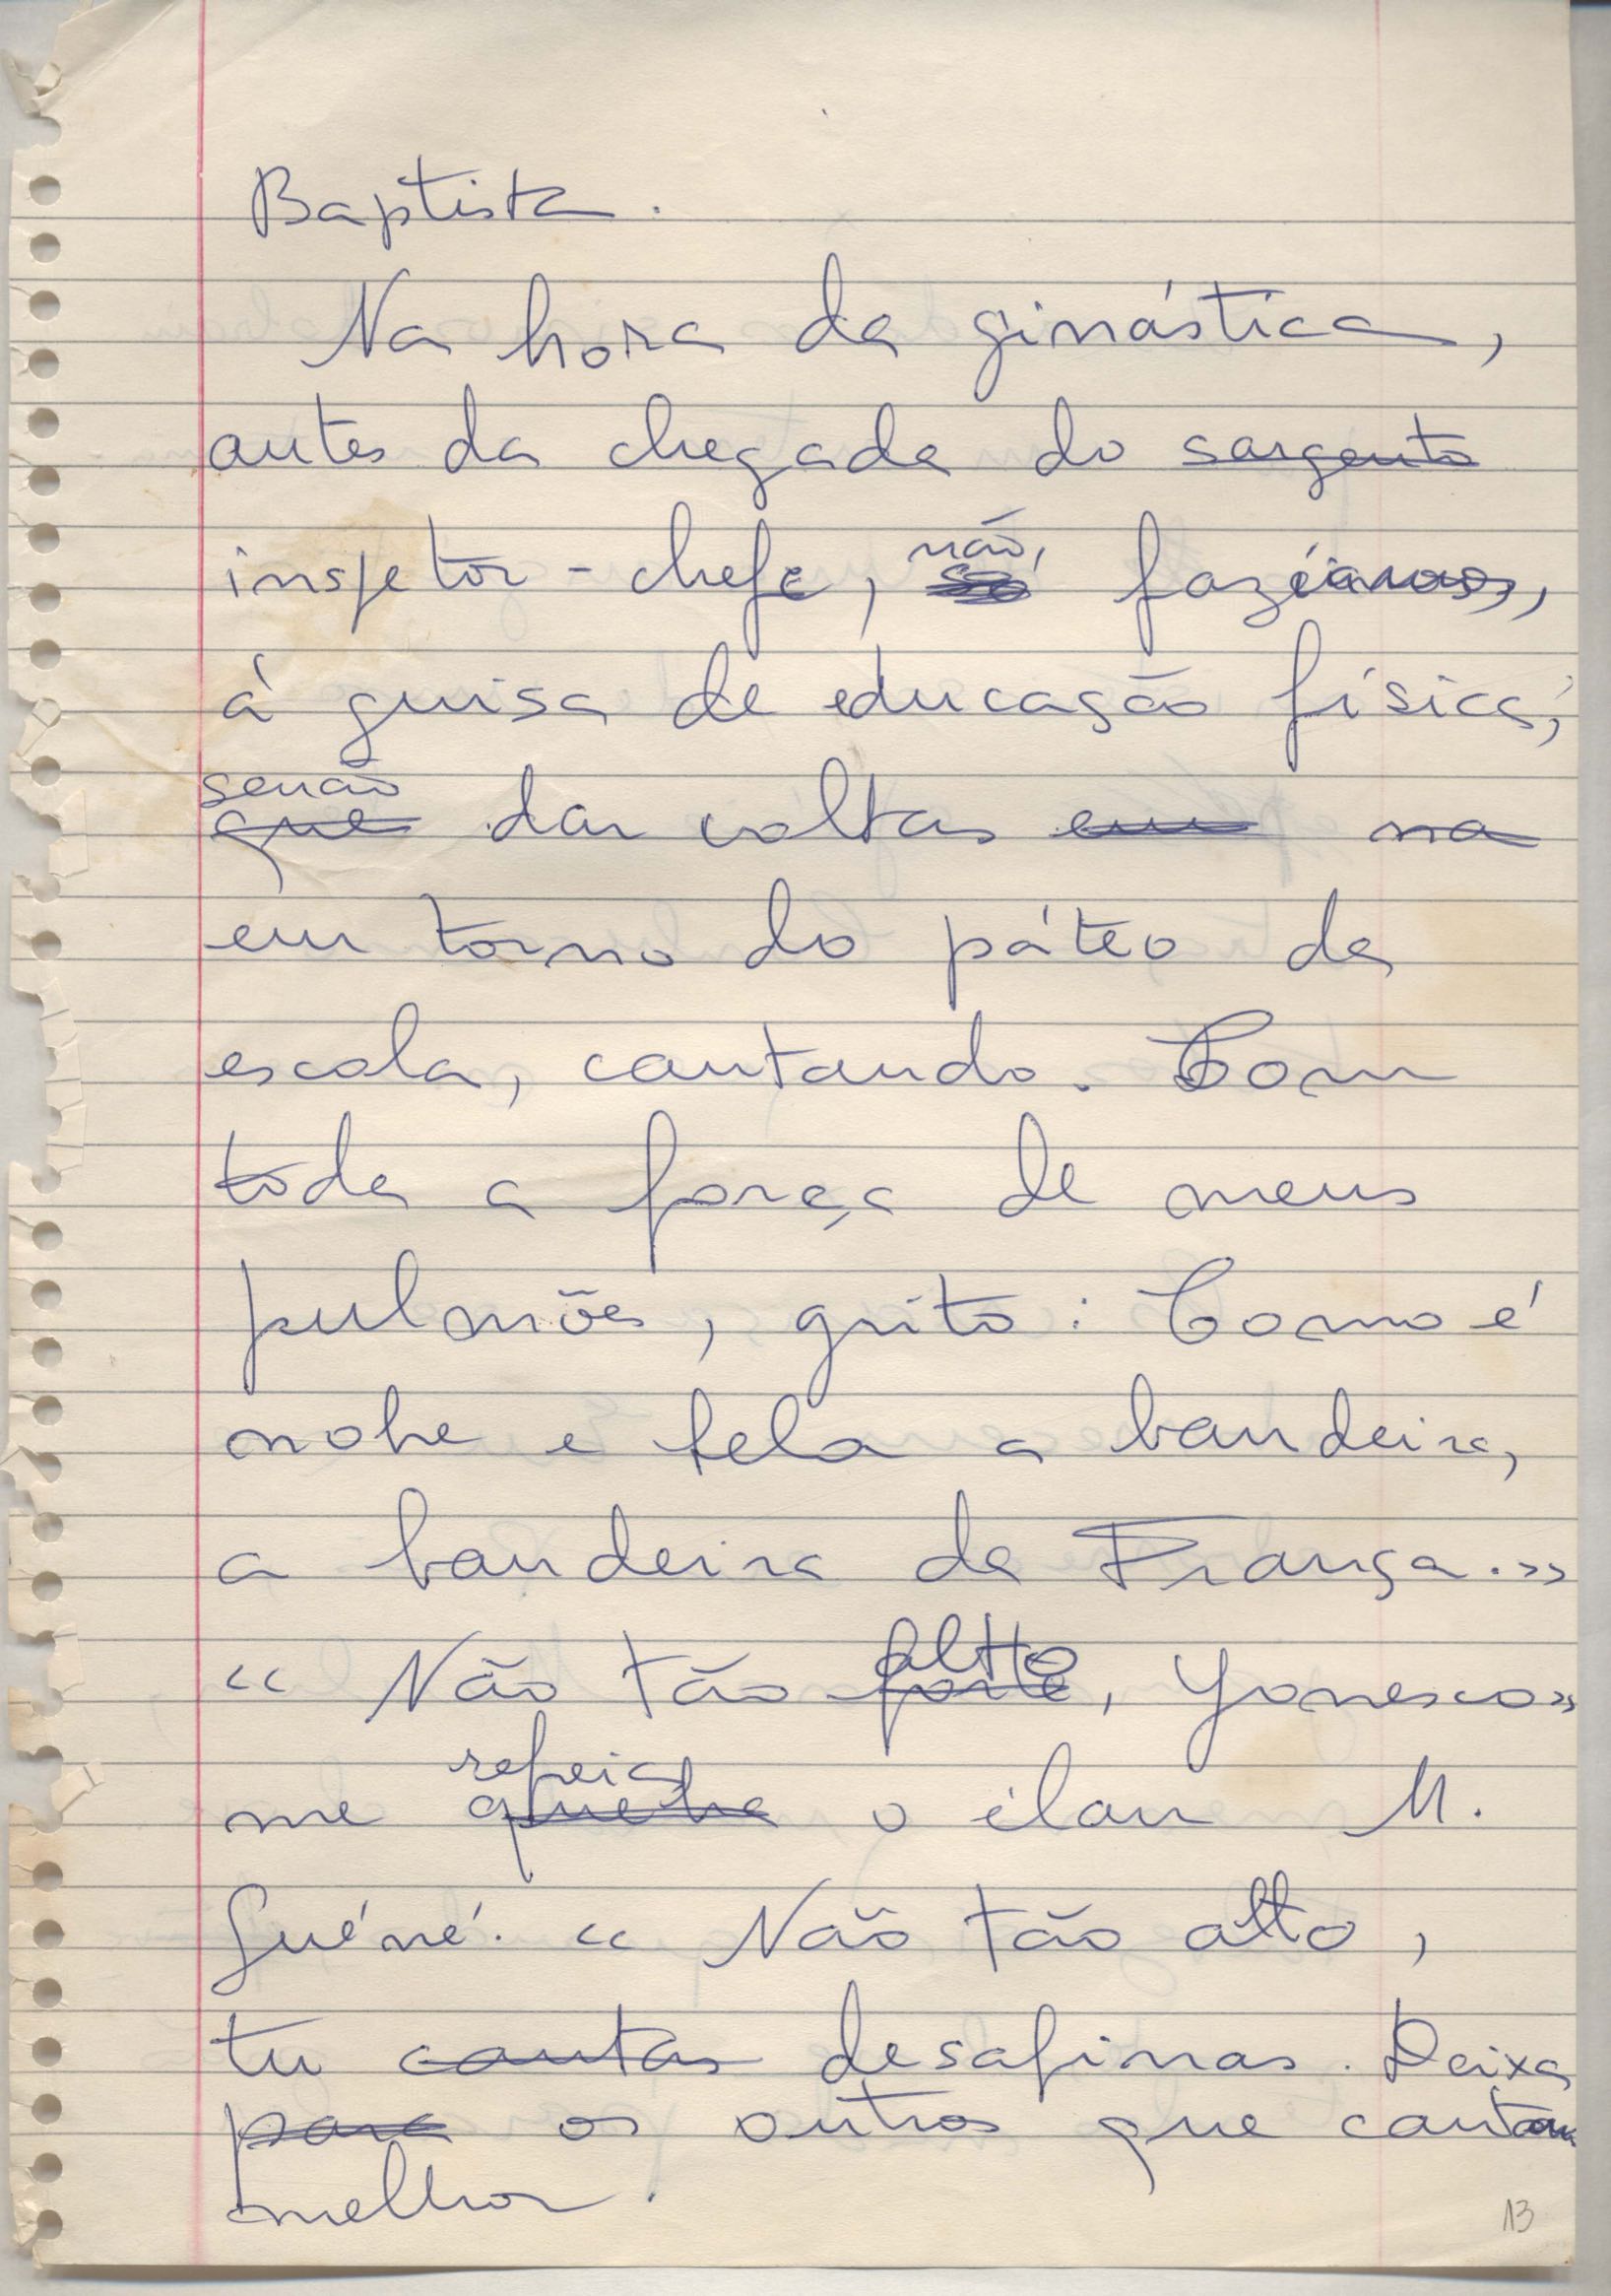 Baptista.
Na hora da ginástica,
antes da chegada do sargento
não,
inspetor-chefe, só fazíamos,
à guisa de educação física,
senão
que dar voltas em na
em torno do páteo da
escola, cantando. Com
toda a força de meus
pulmões, grito: Como é
nobre e bela a bandeira,
a bandeira da França.»
alto
« Não tão forte, Yonesco»
refreia
me quebra o élan M.
Guéné. « Não tão alto,
tu cantas desafinas. Deixa
para os outros que cantam
melhor.
13